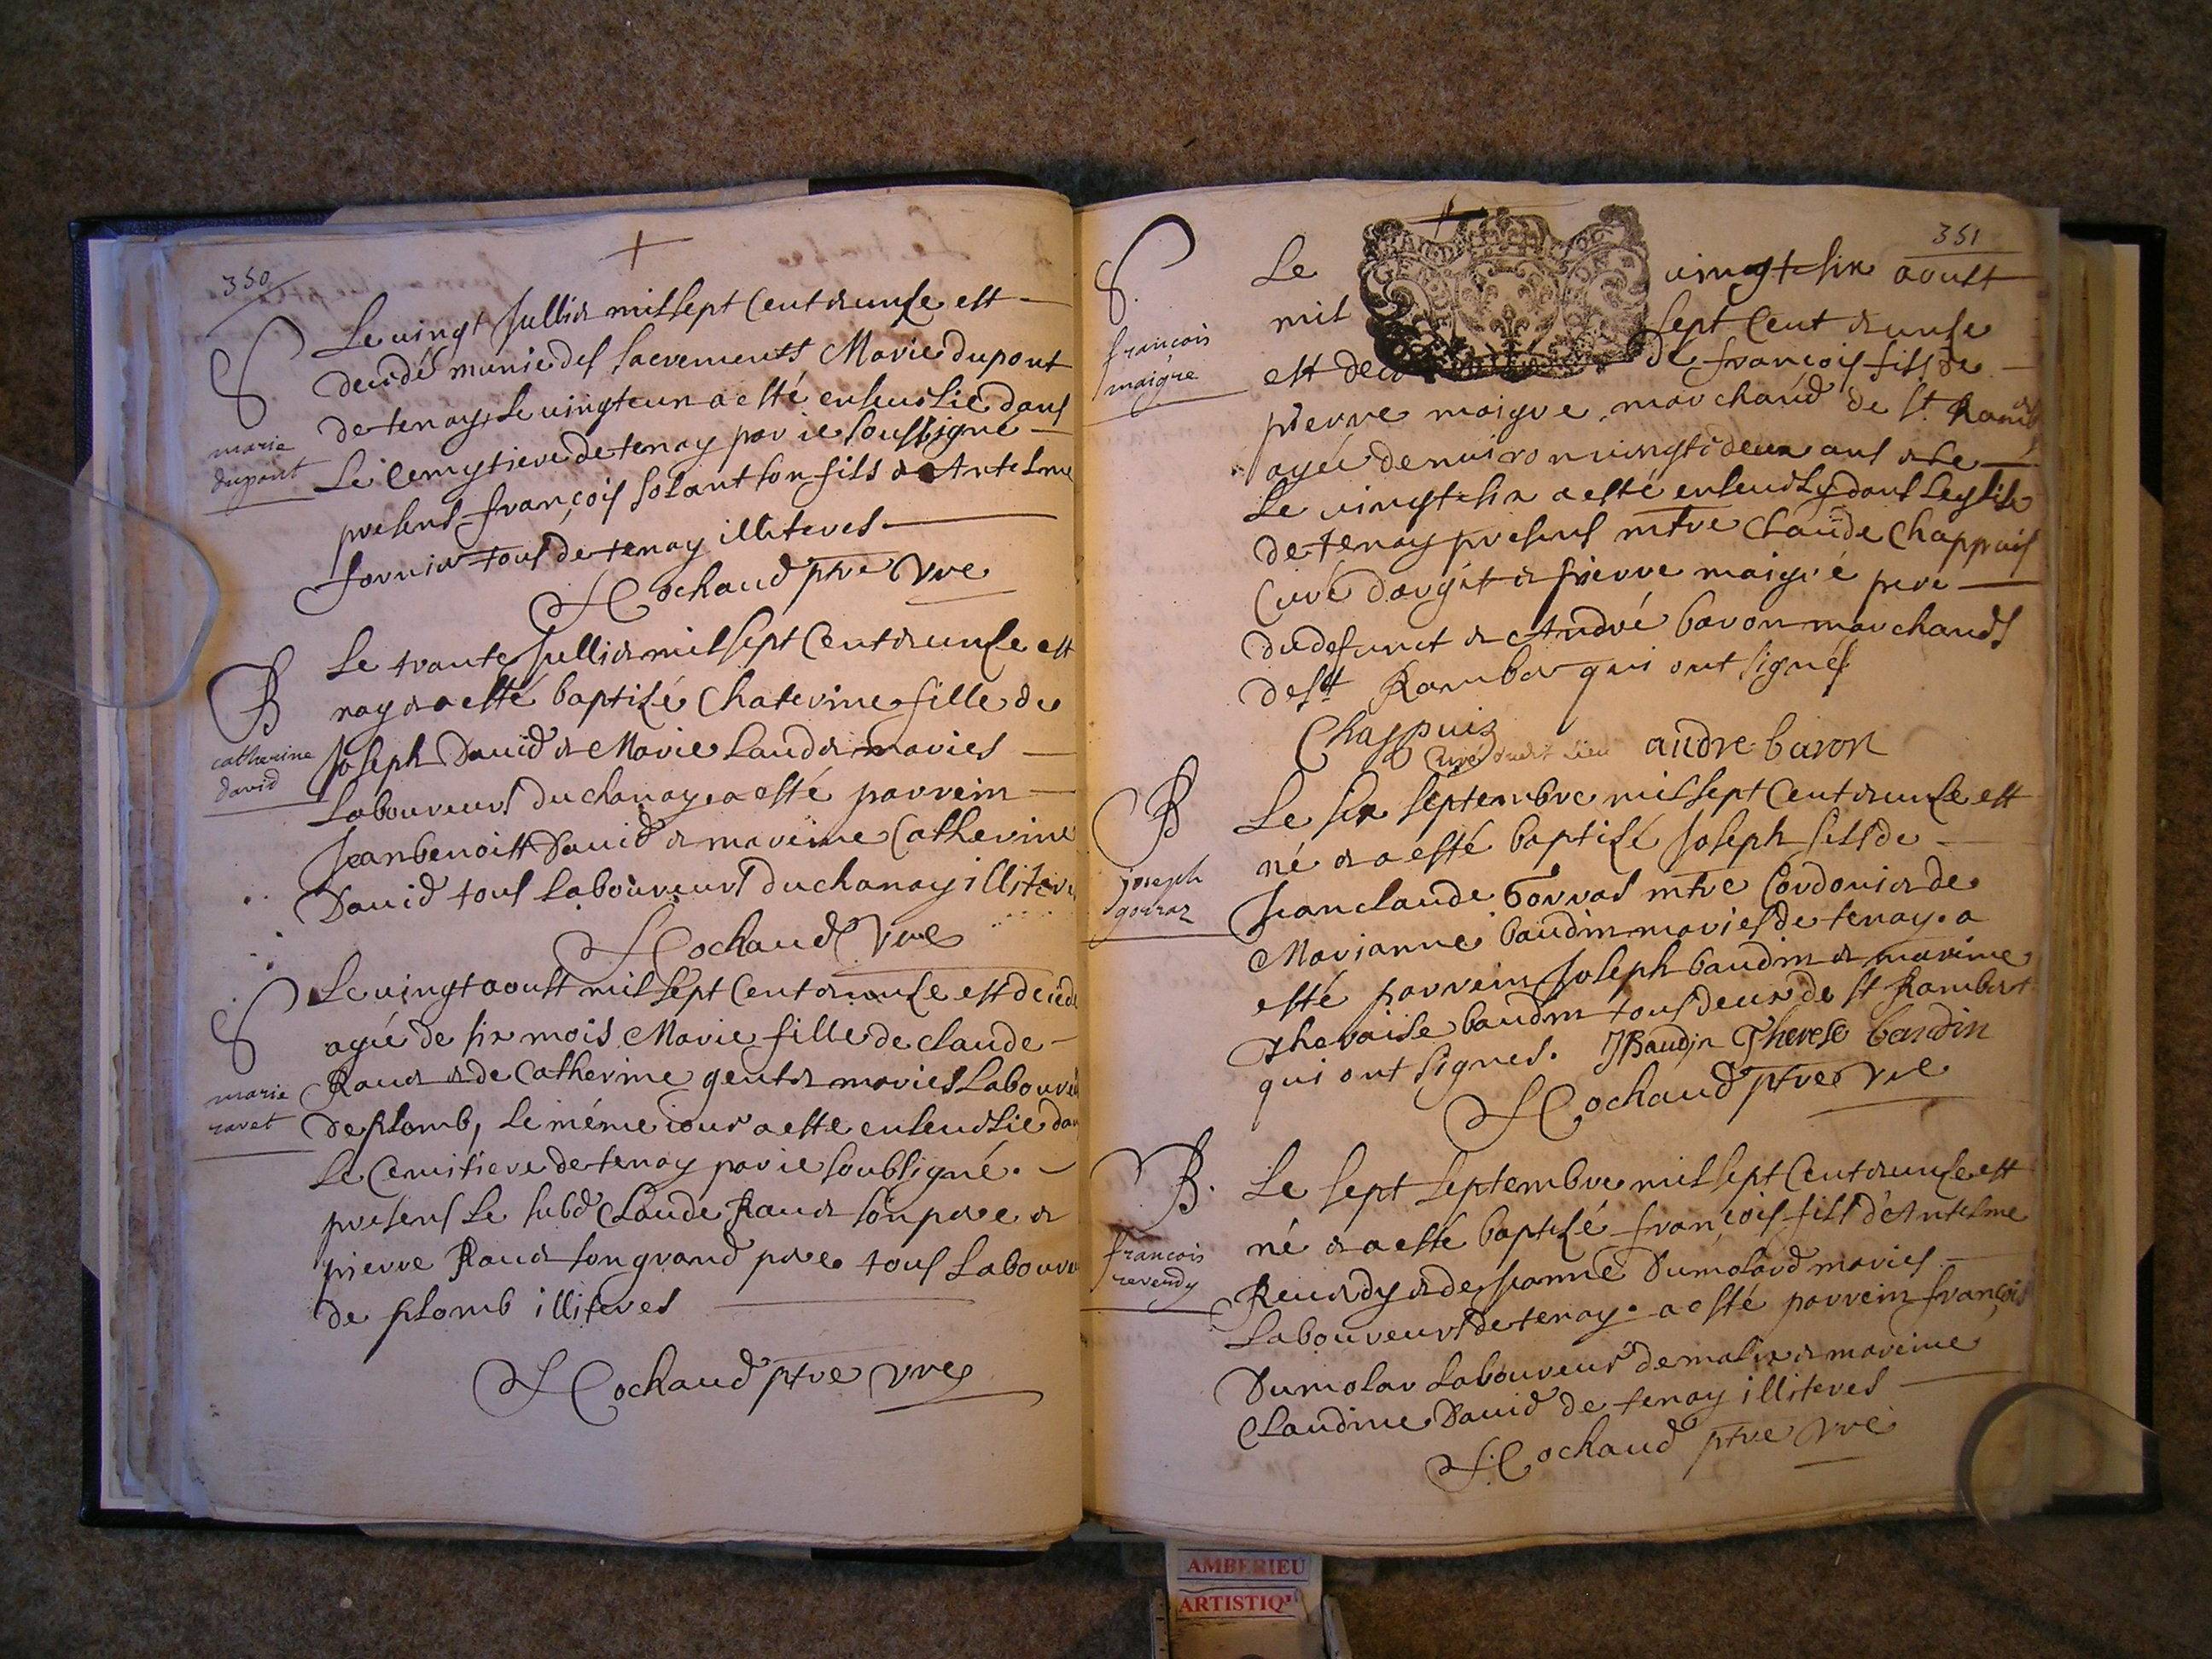 350
S
marie
dupont
Le vingt Jullier mil sept Cent et unse est
decedé munie des sacrements Marie dupont
de tenay, le vingt eun a esté ensevelie dans
Le Cemytiere de tenay par ie soussigné
presens françois solant son fils et Antelme
fornier tous de tenay illiteres
Cochaud ptre vre
B
catherine
david
Le trante Jullier mil sept Cent et unse est
nay et a esté baptizé Chaterine fille de
Joseph David et Marie Lauder maries
Laboureurs du chanay, a esté parrein
Jean benoitt David et mareine Catherine
David tous Laboureurs du chanay illitere
Cochaud vre
S
marie
ravet
Le vingt aoust mil sept Cent et unse est decede
agée de six mois Marie fille de claude
Raver et de Catherine genter maries Laboureu
de plomb, Le méme iour a esté ensevelie dan
Le Cemitiere de tenay par ie soubsigné.
presens Le subd Claude Raver son pere et
pierre Raver son grand pere tous Laboure
de plomb illiteres
Cochaud ptre vre
351
S.
francois
maigre
Le vingt six aoust
mil sept Cent et unse
est dece de françois fils de
pierre maigre marchand de St. Ramb
agée denviron vingt deux ans et le
Le vingt six a esté ensevely dans Leglise
de tenay presens mtre Claude Chappuis
Curé dargit et pierre maigre pere
du defunct et André baron marchands
de st Ramber qui ont signés
Chappuis
Curé dudit Lieu andre baron
B
joseph
gorraz
Le six septembre mil sept Cent et unse est
né et a esté baptizé Joseph fils de
Jean claude gorras mtre Cordonier de
Marianne baudin maries de tenay. a
esté parrein Joseph baudin et mareine
Theraise baudin tous deux de St Rambert
qui ont signes. JBaudin Therese baudin
Cochaud ptre vre
B.
francois
reverdy
Le sept septembre mil sept Cent et unse est
né et a esté baptizé françois fils d'Antelme
Reverdy et de Jeanne Dumolard maries
Laboureurs de tenay. a esté parrein françois
Dumolar Laboureur de malix et mareine
Claudine David de tenay illiteres
Cochaud ptre vre
AMBERIEU
ARTISTIQ'